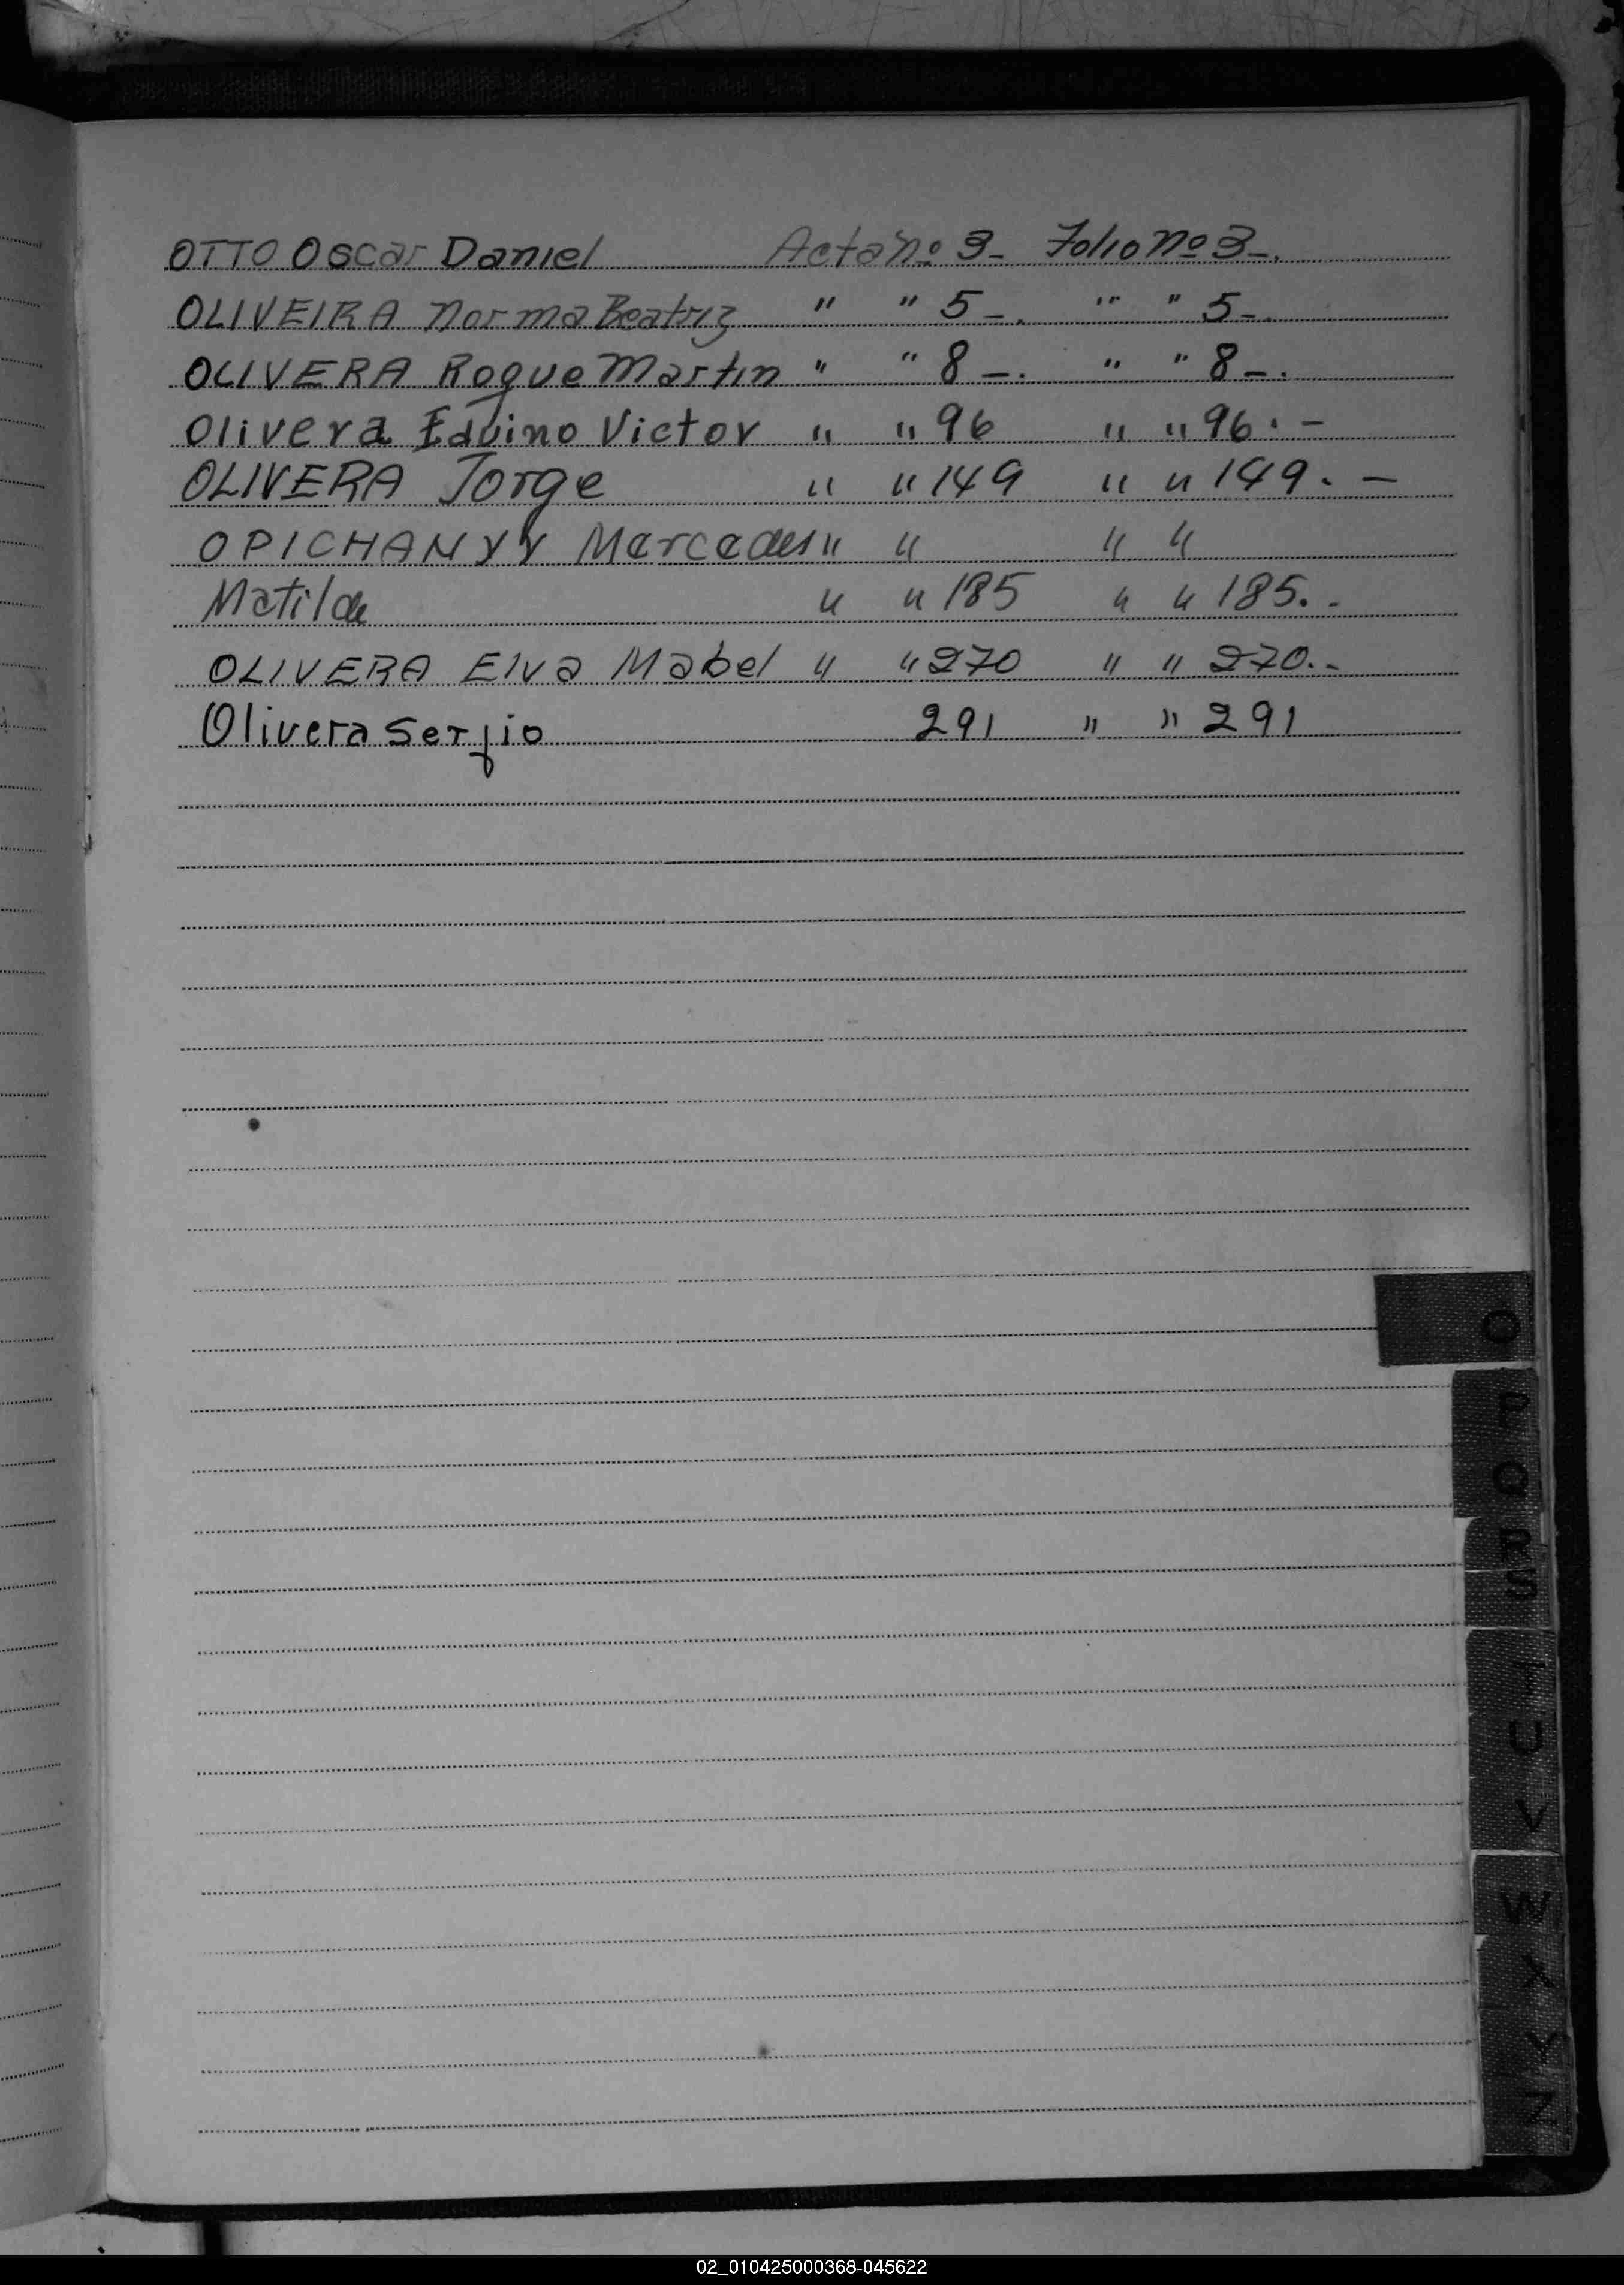 OTTO Oscar Daniel Acta nº 3 - Folio nº 3 -.
OLIVEIRA Norma Beatriz " " 5 -. " " 5 -.
OLIVERA Roque Martin " " 8 -. " " 8 -.
Olivera Eduino Victor " " 96 " " 96. -
OLIVERA Jorge " " 149 " " 149. -
OPICHANYY Mercedes " " " "
Matilde " " 185 " " 185. -
OLIVERA Elva Mabel " " 270 " " 270. -
Olivera Sergio 291 " " 291
O
P
Q
R
S
T
U
V
W
X
Y
Z
02_010425000368-045622